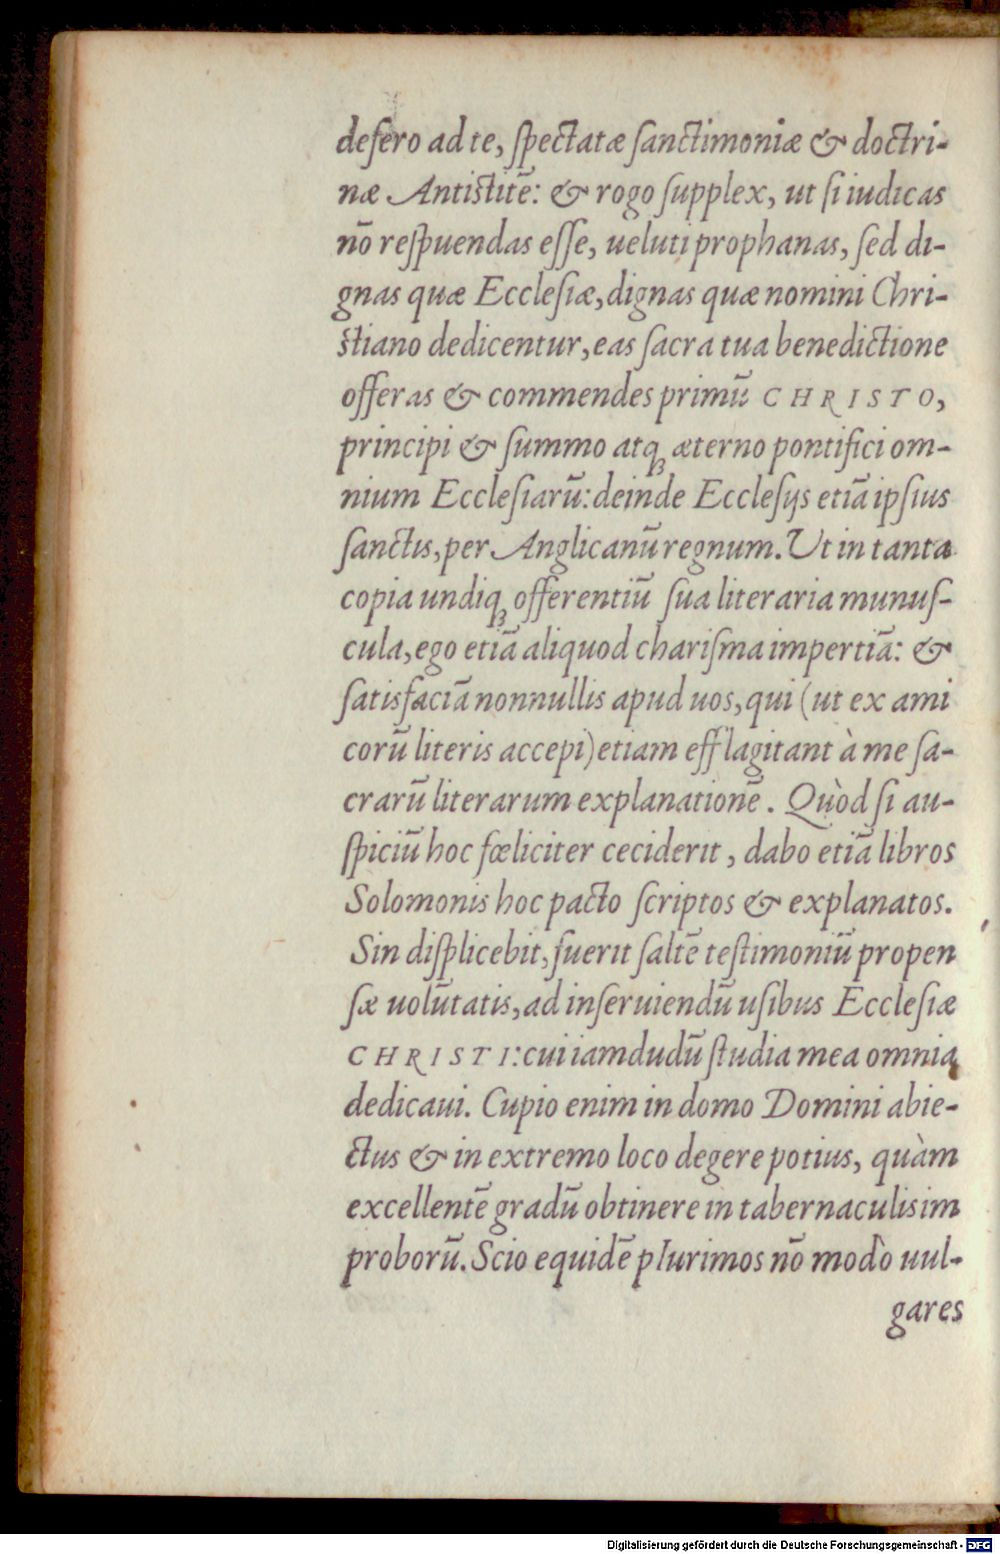 defero ad te, ſpectatæ ſanctimoniæ & doctri-
næ Antiſtitē: & rogo ſupplex, ut ſi iudicas
nō reſpuendas eſſe, ueluti prophanas, ſed di-
gnas quæ Eccleſiæ, dignas quæ nomini Chri-
ſtiano dedicentur, eas ſacra tua benedictione
offeras & commendes primū CHRISTO,
principi & ſummo atqꝫ æterno pontifici om-
nium Eccleſiarū: deinde Eccleſijs etiā ipſius
ſanctis, per Anglicanū regnum. Ut in tanta
copia undiqꝫ offerentiū ſua literaria munuſ-
cula, ego etiā aliquod chariſma impertiā: &
ſatisfaciā nonnullis apud uos, qui (ut ex ami
corū literis accepi) etiam efflagitant à me ſa-
crarū literarum explanationē. Quòd ſi au-
ſpiciū hoc fœliciter ceciderit, dabo etiā libros
Solomonis hoc pacto ſcriptos & explanatos.
Sin diſplicebit, fuerit ſaltē teſtimoniū propen
ſæ uolūtatis, ad inſeruiendū uſibus Eccleſiæ
CHRISTI: cui iamdudū ſtudia mea omnia
dedicaui. Cupio enim in domo Domini abie-
ctus & in extremo loco degere potius, quàm
excellentē gradū obtinere in tabernaculis im
proborū. Scio equidē plurimos nō modò uul-
gares
Digitalisierung gefördert durch die Deutsche Forschungsgemeinschaft - DFG